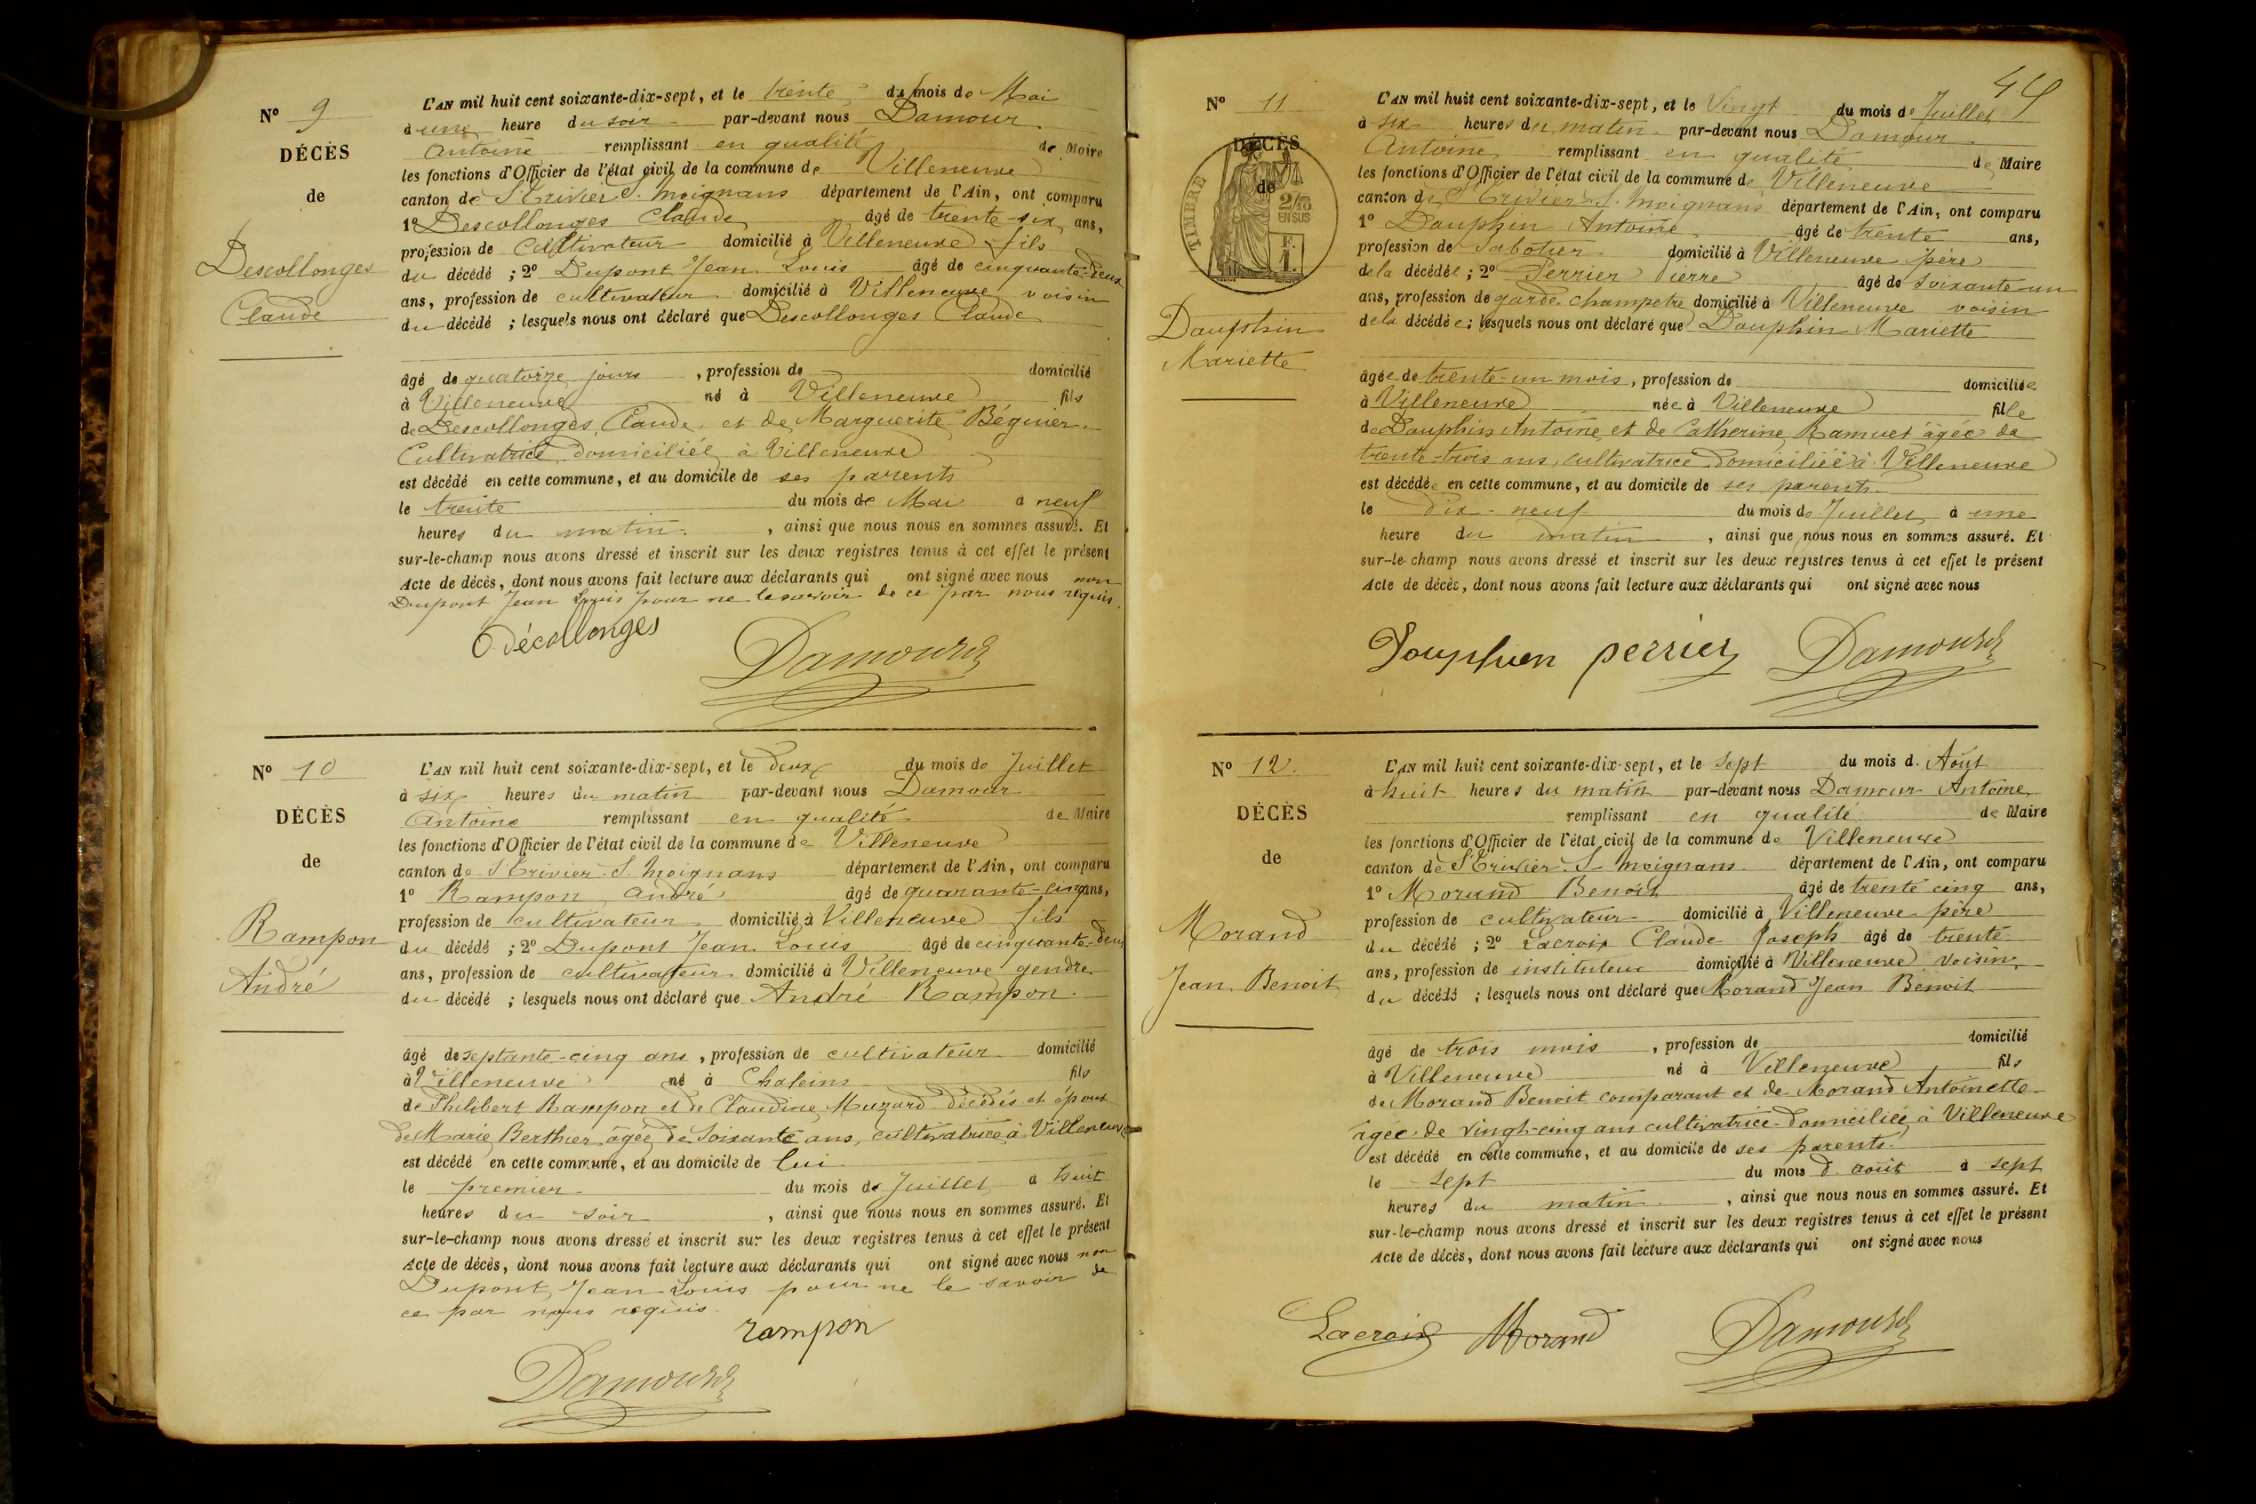 Nº 9
DÉCÈS
de
Descollonges
Claude
L'AN mil huit cent soixante-dix-sept, et le trente du mois de Mai
à une heure du soir par-devant nous Damour
Antoine remplissant en qualité de Maire
les fonctions d'Officier de l'état civil de la commune de Villeneuve
canton de St Trivier S. Moignans département de l'Ain, ont comparu
1º Descollonges Claude âgé de trente-six ans,
profession de cultivateur domicilié à Villeneuve fils
du décédé ; 2º Dupont Jean Louis âgé de cinquante-deux
ans, profession de cultivateur domicilié à Villeneuve voisin
du décédé ; lesquels nous ont déclaré que Descollonges Claude
âgé de quatorze jours , profession de domicilié
à Villeneuve né à Villeneuve fils
de Descollonges Claude et de Marguerite Béguier
Cultivatrice domiciliée à Villeneuve
est décédé en cette commune, et au domicile de ses parents
le trente du mois de Mai à neuf
heures du matin , ainsi que nous nous en sommes assuré. Et
sur-le-champ nous avons dressé et inscrit sur les deux registres tenus à cet effet le présent
Acte de décès, dont nous avons fait lecture aux déclarants qui ont signé avec nous non
Dupont Jean Louis pour ne le savoir de ce par nous requis.
Décollonges Damour
Nº 10
DÉCÈS
de
Rampon
André
L'AN mil huit cent soixante-dix-sept, et le deux du mois de Juillet
à six heures du matin par-devant nous Damour
Antoine remplissant en qualité de Maire
les fonctions d'Officier de l'état civil de la commune de Villeneuve
canton de St Trivier S. Moignans département de l'Ain, ont comparu
1º Rampon André âgé de quarante-cinq ans,
profession de cultivateur domicilié à Villeneuve fils
du décédé ; 2º Dupont Jean Louis âgé de cinquante-deux
ans, profession de cultivateur domicilié à Villeneuve gendre
du décédé ; lesquels nous ont déclaré que André Rampon
âgé de septante-cinq ans , profession de cultivateur domicilié
à Villeneuve né à Chaleins fils
de Philibert Rampon et de Claudine Muzard décédés et époux
de Marie Berthier âgée de soixante ans, cultivatrice à Villeneuve
est décédé en cette commune, et au domicile de lui
le premier du mois de Juillet à huit
heures du soir , ainsi que nous nous en sommes assuré. Et
sur-le-champ nous avons dressé et inscrit sur les deux registres tenus à cet effet le présent
Acte de décès, dont nous avons fait lecture aux déclarants qui ont signé avec nous non
Dupont Jean Louis pour ne le savoir de
ce par nous requis.
rampon
Damour
44
Nº 11
DÉCÈS
de
TIMBRE
2/10
EN SUS
F.
1.
Dauphin
Mariette
L'AN mil huit cent soixante-dix-sept, et le Vingt du mois de Juillet
à six heures du matin par-devant nous Damour
Antoine remplissant en qualité de Maire
les fonctions d'Officier de l'état civil de la commune de Villeneuve
canton de St Trivier S. Moignans département de l'Ain, ont comparu
1º Dauphin Antoine âgé de trente ans,
profession de Sabotier domicilié à Villeneuve père
de la décédée ; 2º Perrier Pierre âgé de soixante-un
ans, profession de garde-champetre domicilié à Villeneuve voisin
de la décédée ; lesquels nous ont déclaré que Dauphin Mariette
âgée de trente-un mois , profession de domiciliée
à Villeneuve née à Villeneuve fille
de Dauphin Antoine et de Catherine Ramuet âgée de
trente-trois ans, cultivatrice domiciliée à Villeneuve
est décédée en cette commune, et au domicile de ses parents
le dix-neuf du mois de Juillet à une
heure du matin , ainsi que nous nous en sommes assuré. Et
sur-le-champ nous avons dressé et inscrit sur les deux registres tenus à cet effet le présent
Acte de décès, dont nous avons fait lecture aux déclarants qui ont signé avec nous
Douphuen perrier Damour
Nº 12.
DÉCÈS
de
Morand
Jean Benoit
L'AN mil huit cent soixante-dix-sept, et le sept du mois d. Août
à huit heures du matin par-devant nous Damour Antoine
remplissant en qualité de Maire
les fonctions d'Officier de l'état civil de la commune de Villeneuve
canton de St Trivier S. Moignans département de l'Ain, ont comparu
1º Morand Benoit âgé de trente cinq ans,
profession de cultivateur domicilié à Villeneuve père
du décédé ; 2º Lacroix Claude Joseph âgé de trente
ans, profession de instituteur domicilié à Villeneuve voisin
du décédé ; lesquels nous ont déclaré que Morand Jean Benoit
âgé de trois mois , profession de domicilié
à Villeneuve né à Villeneuve fils
de Morand Benoit comparant et de Morand Antoinette
âgée de vingt-cinq ans cultivatrice domiciliée à Villeneuve
est décédé en cette commune, et au domicile de ses parents
le sept du mois d. août à sept
heures du matin , ainsi que nous nous en sommes assuré. Et
sur-le-champ nous avons dressé et inscrit sur les deux registres tenus à cet effet le présent
Acte de décès, dont nous avons fait lecture aux déclarants qui ont signé avec nous
Lacroix Morand Damour